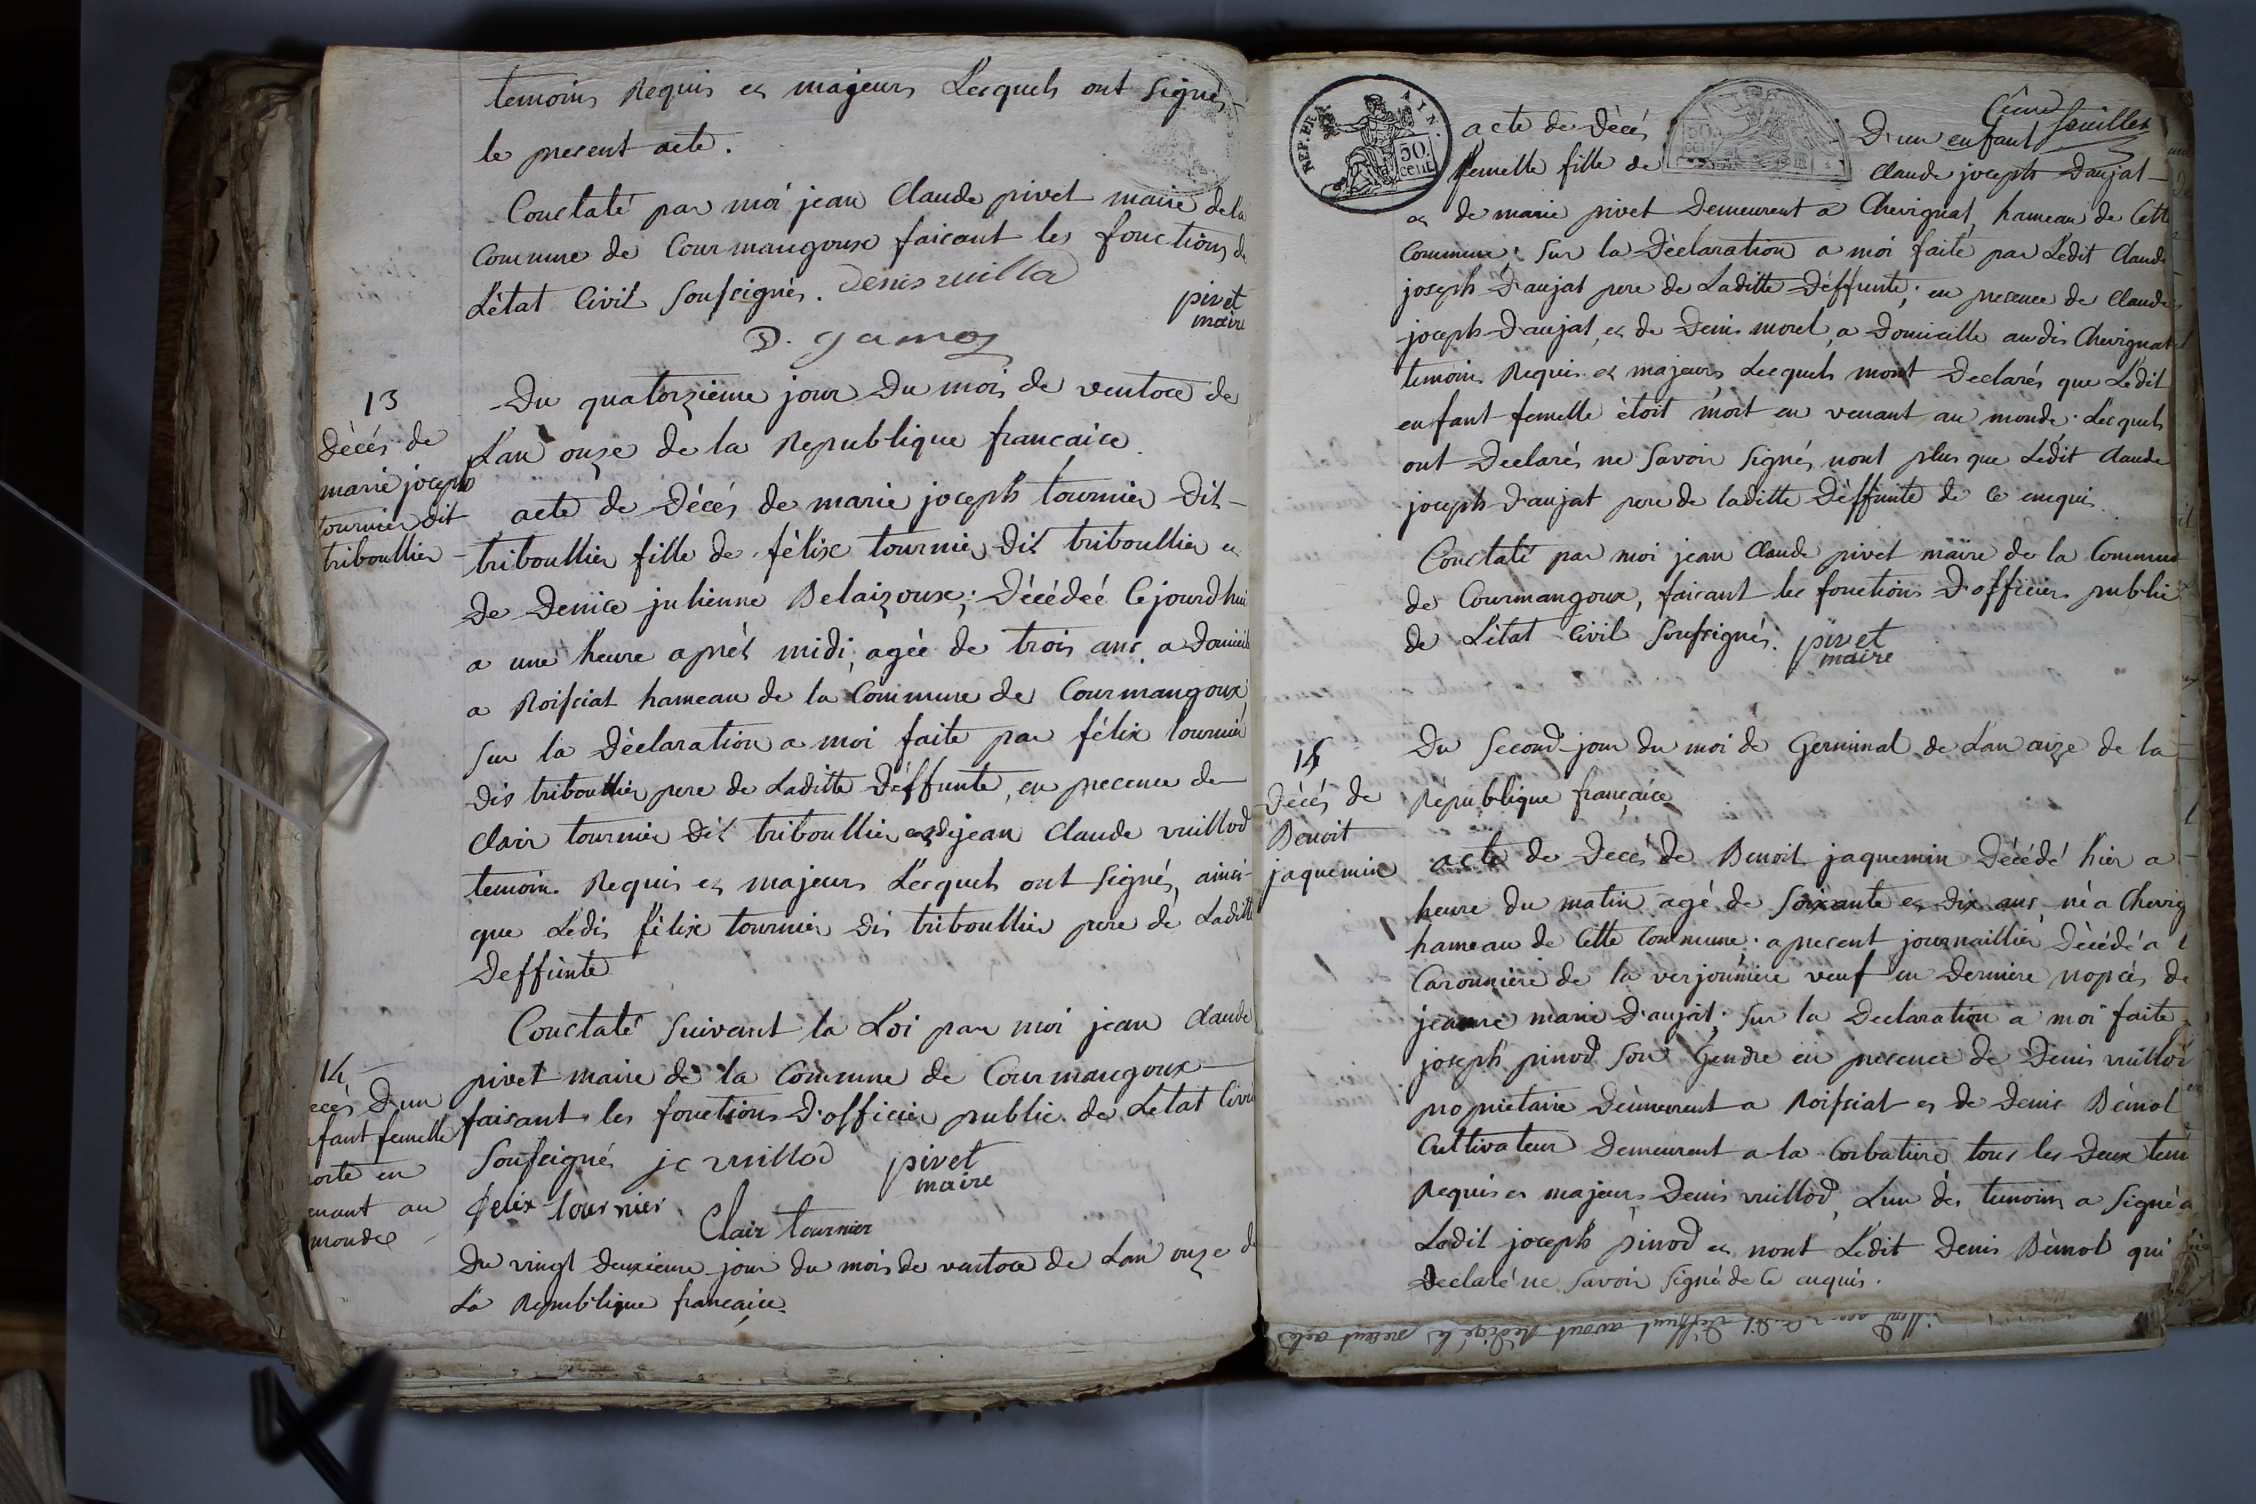 temoins Requis et majeurs Lesquels ont Signés
le present acte.
Constaté par moi jean Claude pivet maire dela
Commune de Courmangoux faisant les fonctions de
L'état Civil Soussignés. Denis vuillod
pivet
maire
D. gamoz
13
Décés de
marie joseph
tournier dit
triboullier
Du quatorzieme jour Du mois de ventose de
L'an onze de la Republique francaise.
acte de Décés de marie joseph tournier Dit
triboullier fille de félix tournier Dit triboullier et
De Denise julienne Belaizoux; Décédeé Cejourdhui
a une heure aprés midi, agée de trois ans, a Domicile
a Roissiat hameau de la Commune de Courmangoux,
Sur la Déclaration a moi faite par félix tournier
Dit triboullier pere de Laditte Déffunte, en presence de
Clair tournier Dit triboullier et de jean Claude vuillod
temoins Requis et majeurs Lesquels ont Signés, ainsi
que Ledit félix tournier Dit triboullier pere de Laditte
Deffunte
Constaté Suivant la Loi par moi jean Claude
pivet maire de la Commune de Courmangoux
faisant les fonctions D'officier public de L'etat Civil
Soussigné jc vuillod pivet
maire
felix tournier
Clair tournier
14
ecés D'un
fant femelle
orte en
enant au
monde
Du vingt Deuxieme jour du mois de ventose de L'an onze de
La Republique francaise.
REP. FRA. AIN.
50
cent.
50
cent
Cent
feuillet
acte de Décés D'un enfant
femelle fille de Claude joseph Daujat
et de marie pivet Demeurent a Chevignat, hameau de Cette
Commune; Sur la Déclaration a moi faite par Ledit Claude
joseph D'aujat pere de Laditte Déffunte; en presence de Claude
joseph D'aujat, et de Denis morel, a Domicille audit Chevignat
temoins Requis et majeurs Lesquels mont Declarés que Ledit
enfant femelle étoit mort en venant au monde. Lesquels
ont Declarés ne Savoir Signés nont plus que Ledit Claude
joseph D'aujat pere de laditte Déffunte de ce enquis.
Constaté par moi jean Claude pivet maire de la Commune
de Courmangoux, faisant les fonctions D'officier public
de L'état Civil Soussignés. pivet
maire
15
Décés de
Benoit
jaquemin
Du Second jour du moi de Germinal de L'an onze de la
Republique française
acte de Decés de Benoit jaquemin Décédé hier a
heure du matin agé de Soixante et Dix ans né a Chevig
hameau de Cette Commune; a present journaillier, Décédé a l
Caronniere de la verjonniere veuf en Derniere nopces de
jeanne marie D'aujat; Sur la Declaration a moi faite
joseph pinod Son Gendre en presence de Denis vuillod
propriétaire Demeurent a Roissiat et de Denis Bémol
Cultivateur Demeurent a la Corbatiere tous les Deux tem
Requis et majeurs Denis vuillod, L'un des temoins a Signé a
Ledit joseph pinod et nont Ledit Denis Bémol qui
Declaré ne Savoir Signé de Ce enquis.
Deffunt avant Redigé le present acte